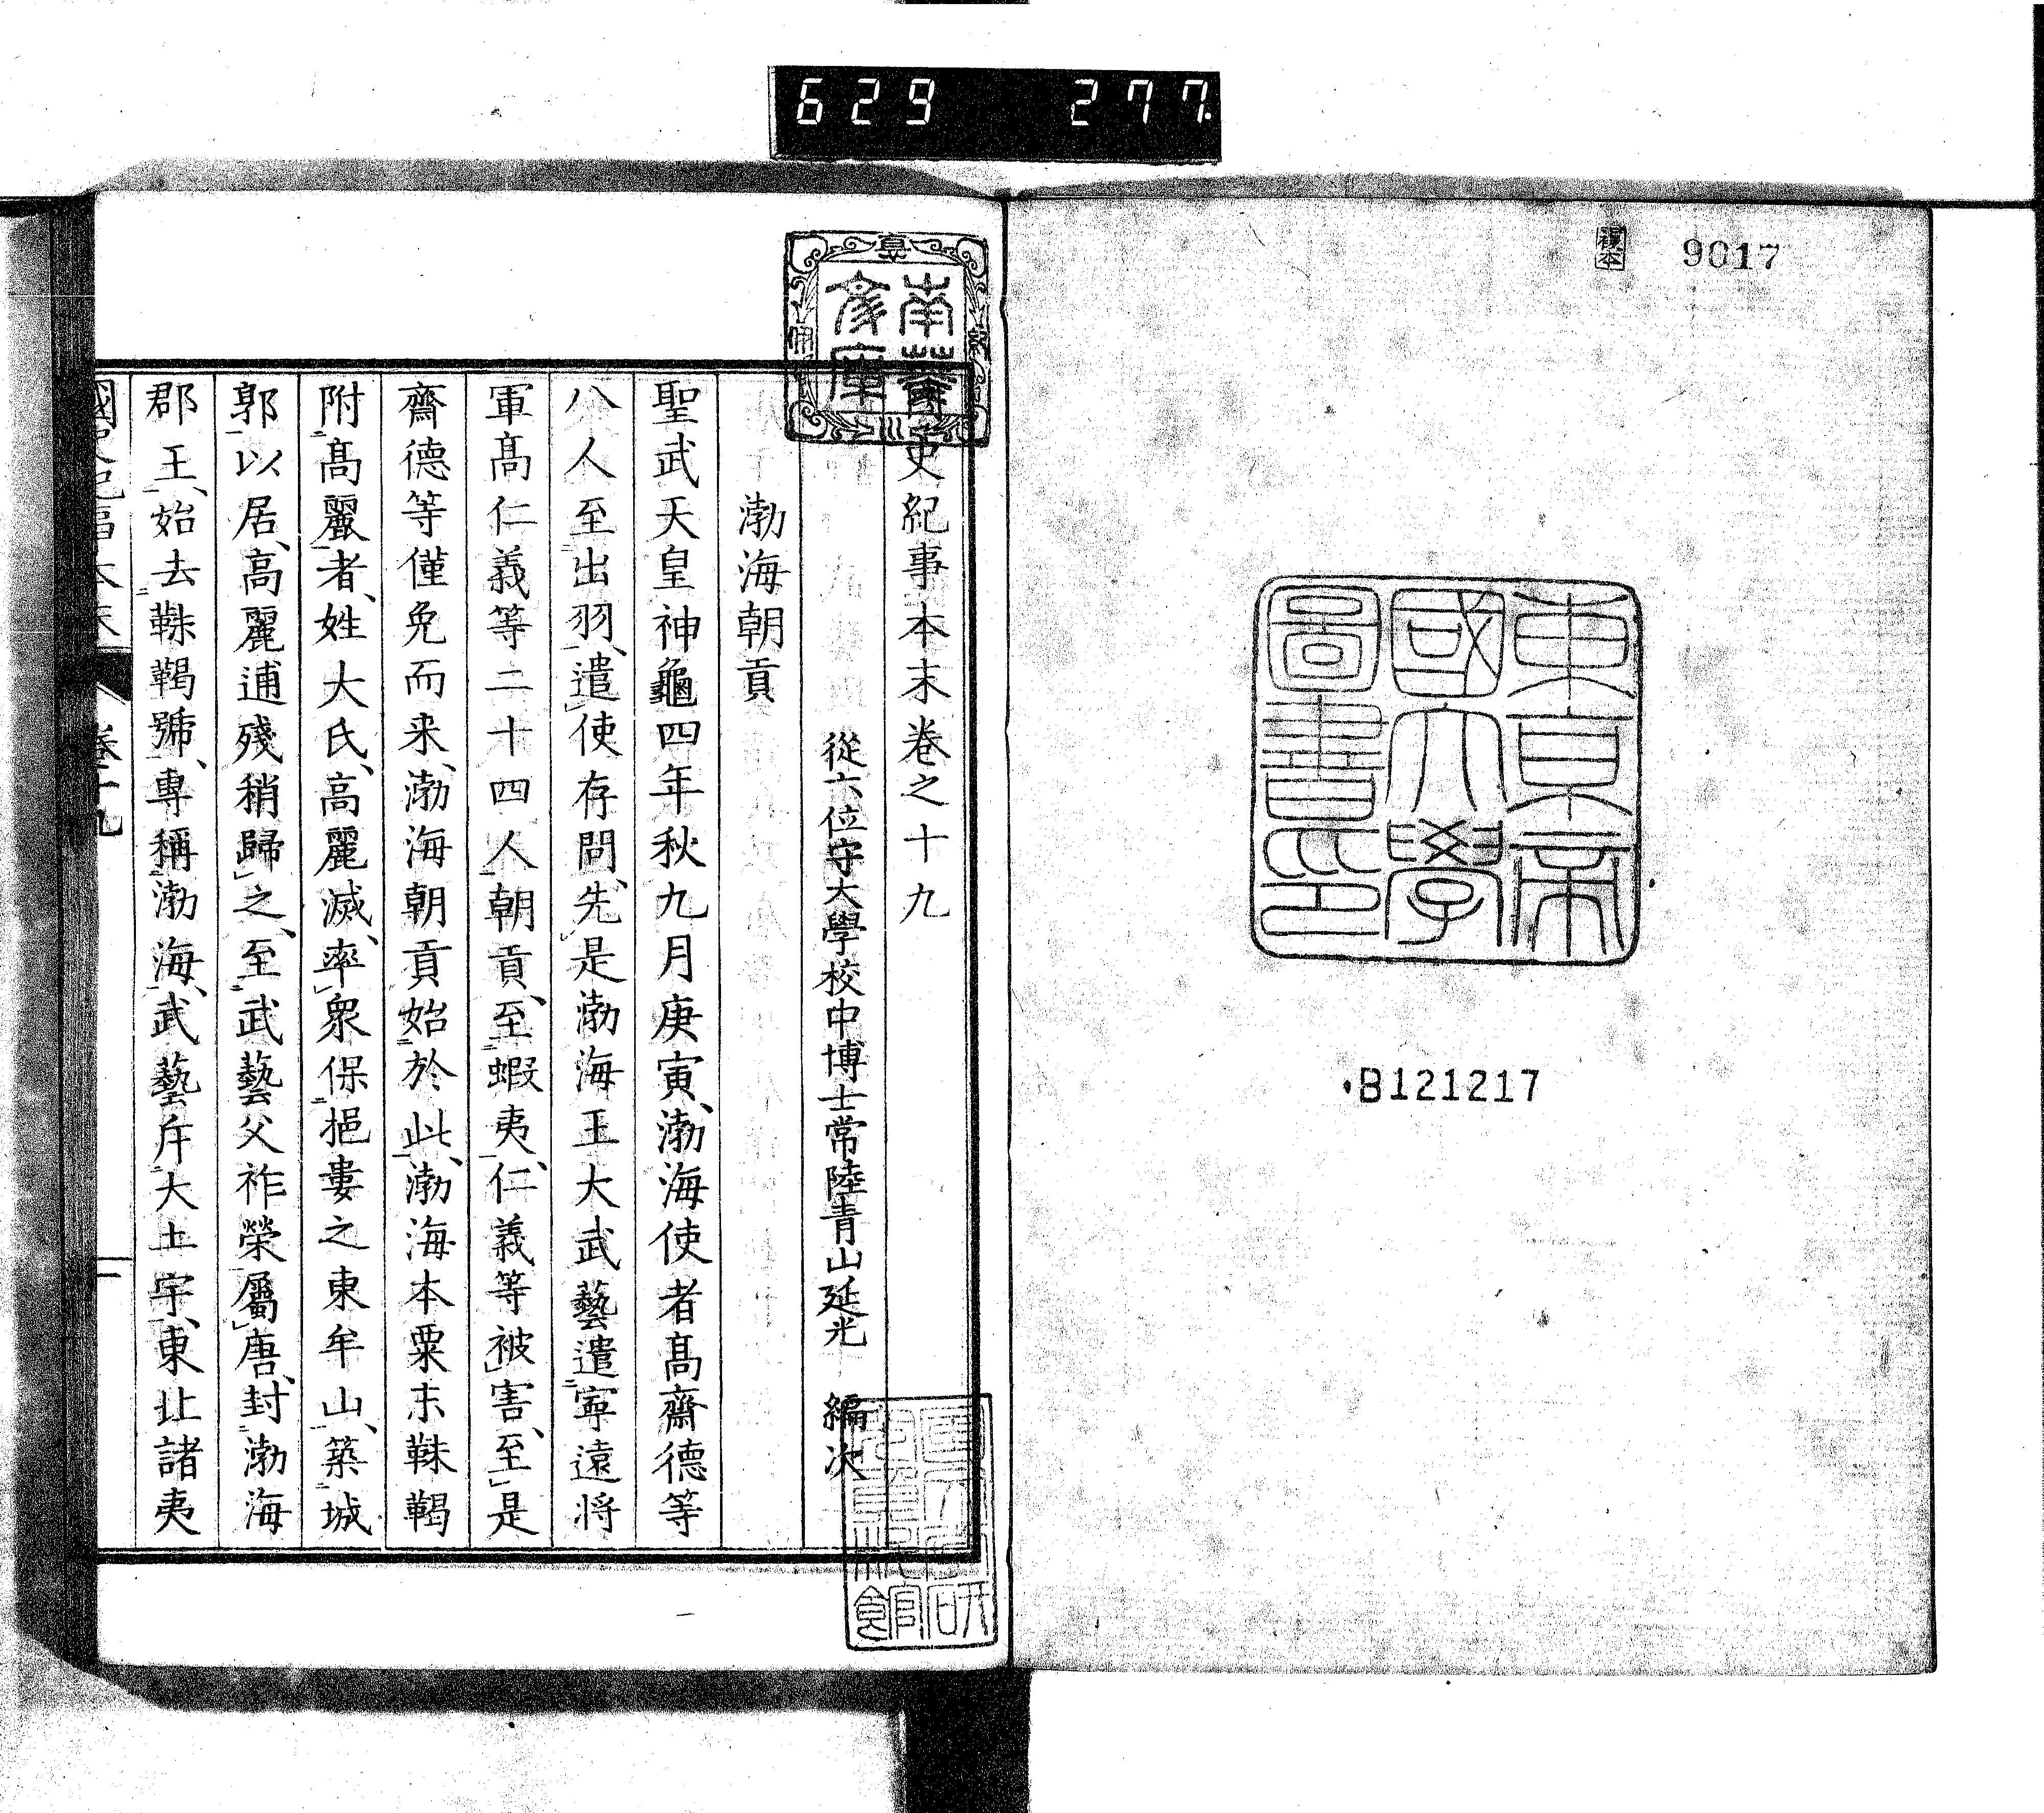 629 277
複本
9017
東京帝
國大學
圖書印
B121217
南葵
文庫
史紀事本末卷之十九
從六位守大學校中博士常陸青山延光 編次
渤海朝貢
聖武天皇神龜四年秋九月庚寅、渤海使者髙齋德等
八人至出羽、遣使存問、先是渤海王大武藝遣寧遠將
軍髙仁義等二十四人朝貢、至蝦夷、仁義等被害、至是
齋德等僅免而来、渤海朝貢始於此、渤海本粟末靺鞨
附髙麗者、姓大氏、高麗滅、率衆保挹婁之東牟山、築城
郭以居、高麗逋殘稍歸之、至武藝父祚榮屬唐、封渤海
郡王、始去靺鞨號、專稱渤海、武藝斥大土宇、東北諸夷
國史紀事本末
卷十九
一